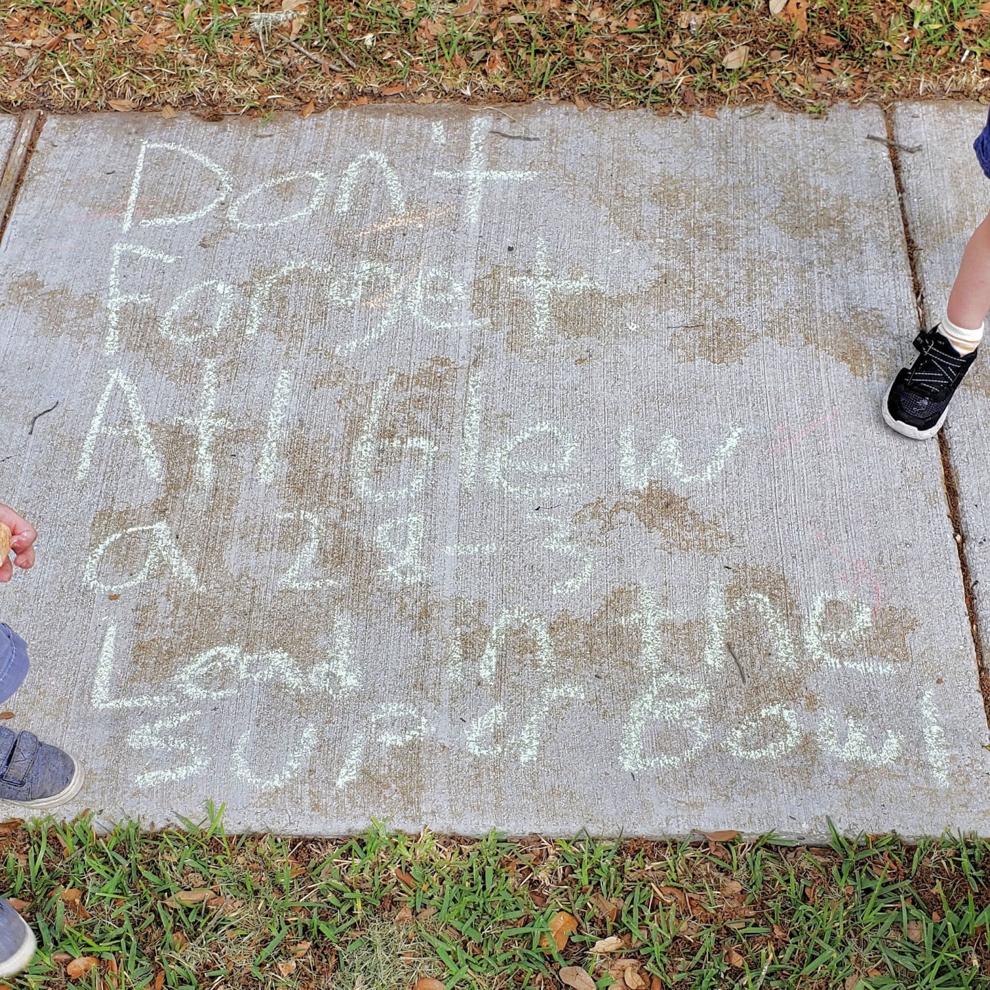 Don't
Forget
Atl blew
a 28-3
Lead in the
Super Bowl